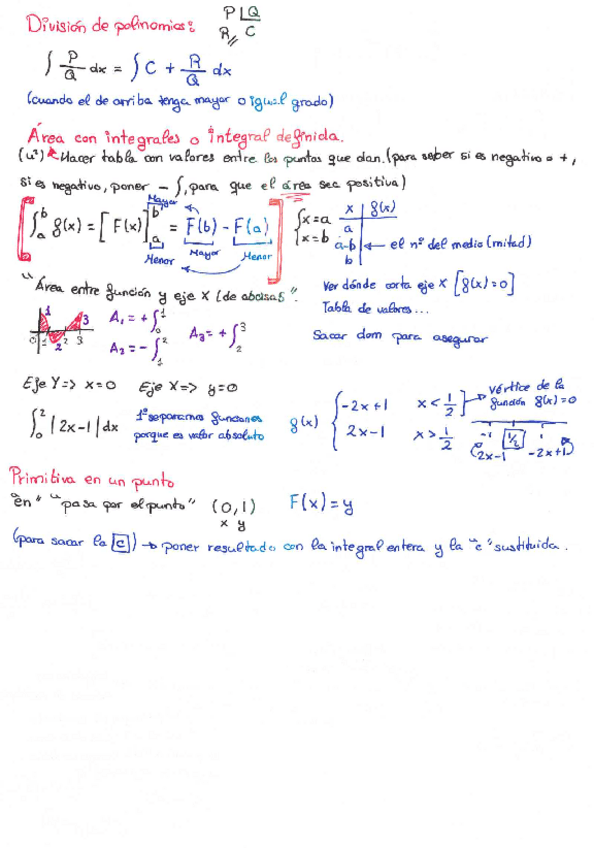 División de polinomios: P | Q
R // C
∫ P/Q dx = ∫ C + R/Q dx
(cuando el de arriba tenga mayor o igual grado)
Área con integrales o Integral definida.
(u²) Hacer tabla con valores entre los puntos que dan. (para saber si es negativo o +,
si es negativo, poner - ∫, para que el área sea positiva)
[∫ₐᵇ f(x) = [F(x)]ₐᵇ = F(b) - F(a)]
Mayor
Menor
Mayor Menor
{x=a
x=b
x f(x)
a
a-b ← el nº del medio (mitad)
b
"Área entre función y eje X (de abcisas".
Ver dónde corta eje X [f(x)=0]
Tabla de valores...
Sacar dom para asegurar
1 3
0 1 2 3
2
A₁ = + ∫₀¹
A₂ = - ∫₁²
A₃ = + ∫₂³
Eje Y => x=0 Eje X => y=0
∫₀² |2x-1| dx
1º separamos funciones
porque es valor absoluto
f(x) { -2x+1 x < 1/2
2x-1 x > 1/2
vértice de la
función f(x)=0
-1 1/2 1
2x-1 -2x+1
Primitiva en un punto
"en" "pasa por el punto" (0,1) F(x) = y
x y
(para sacar la C) → poner resultado con la integral entera y la "c" sustituida.